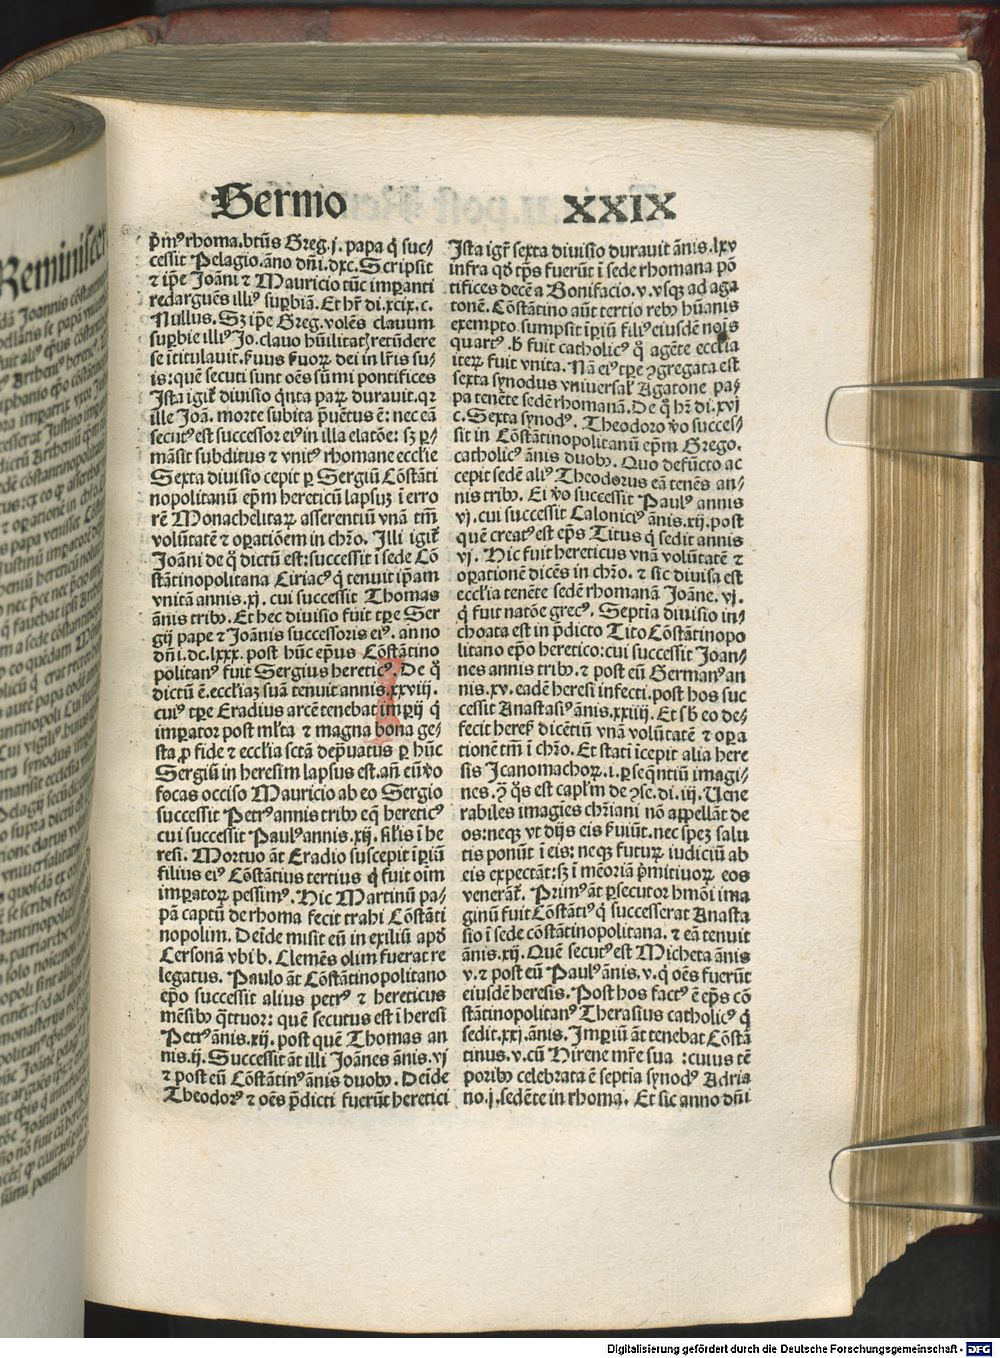 Sermo XXIX
p̄mꝰ rhoma. btūs Greg. j. papa q̇ suc-
cessit Pelagio. āno dn̄i. dxc. Scripsit
⁊ ip̄e Joāni ⁊ Mauricio tūc imꝑanti
redarguēs illiꝰ suꝑbiā. Et hr̄ di. xcix. c.
Nullus. Sz ip̄e Greg. volēs clauum
suꝑbie illiꝰ Jo. clavo hūilitatꝭ retūdere
se ītitulauit. ẜuus ẜuoꝝ dei in lr̄is su-
is: quē secuti sunt oēs sūmi pontifices
Ista igit̄ divisio q̇nta parꝝ durauit. qꝛ
ille Joā. morte subita p̄uētus ē: nec eā
secutꝰ est successor eiꝰ in illa elatōe: sz ꝑ-
māsit subditus ⁊ vnitꝰ rhomane eccl̄ie
Sexta divisio cepit ꝑ Sergiū Cōstāti
nopolitanū ep̄m hereticū lapsuz ī erro
rē Monachelitaꝝ asserentiū vnā tm̄
volūtatē ⁊ oꝑatiōem in chr̄o. Illi igit̄
Joāni de q̇ dictū est: successit ī sede Cō
stātinopolitana Ciriacꝰ q̇ tenuit ip̄am
vnitā annis. xj. cui successit Thomas
ānis tribꝰ. Et hec divisio fuit tꝑe Ser
gij pape ⁊ Joānis successoris eiꝰ. anno
dn̄i. dc. lxxx. post hūc ep̄us Cōstātino
politanꝰ fuit Sergius hereticꝰ. De q̇
dictū ē. eccl̄iaz suā tenuit annis. xxviij.
cuiꝰ tꝑe Eradius arcē tenebat imꝑij q̇
imꝑator post ml̄ta ⁊ magna bona ge-
sta ꝓ fide ⁊ eccl̄ia sctā dep̄uatus ꝑ hūc
Sergiū in heresim lapsus est. an̄ eūꝰo
focas occiso Mauricio ab eo Sergio
successit Petrꝰ annis tribꝰ eqꝫ hereticꝰ
cui successit Paulꝰ annis. xij. sil̄is ī he
resi. Mortuo āt Eradio suscepit īꝑiū
filius eiꝰ Cōstātius tertius q̇ fuit oīm
imꝑatoꝝ pessimꝰ. Hic Martinū pa-
pā captū de rhoma fecit trahi Cōstāti
nopolim. Deīde misit eū in exiliū apd̄
Cersonā vbi b. Clemēs olim fuerat re
legatus. Paulo āt Cōstātinopolitano
ep̄o successit alius petrꝰ ⁊ hereticus
mēsibꝰ q̇ttuor: quē secutus est ī heresi
Petrꝰ ānis. xij. post quē Thomas an
nis. ij. Successit āt illi Joānes ānis. vj
⁊ post eū Cōstātinꝰ ānis duobꝰ. Deīde
Theodorꝰ ⁊ oēs p̄dicti fuerūt heretici
Ista igr̄ sexta diuisio durauit ānis. lxv
infra qd̄ tp̄s fuerūt ī sede rhomana pō
tifices decē a Bonifacio. v. vsqꝫ ad aga
tonē. Cōstātino aūt tertio rebꝰ hūanis
exempto sumpsit īꝑiū filiꝰ eiusdē nois
quartꝰ. h̄ fuit catholicꝰ q̇ agēte eccl̄ia
iteꝝ fuit vnita. Nā eiꝰ tꝑe ꝯgregata est
sexta synodus vniuersal̄ Agatone pa-
pa tenēte sedē rhomanā. De q̇ hr̄ di. xvj
c. Sexta synodꝰ. Theodoro v̄o succes-
sit in Cōstātinopolitanū ep̄m Grego.
catholicꝰ ānis duobꝰ. Quo defūcto ac
cepit sedē aliꝰ Theodorus eā tenēs an-
nis tribꝰ. Ei v̄o successit Paulꝰ annis
vj. cui successit Calonicꝰ ānis. xij. post
quē creatꝰ est ep̄s Titus q̇ sedit annis
vj. Hic fuit hereticus vnā volūtatē ⁊
oꝑationē dicēs in chr̄o. ⁊ sic diuisa est
eccl̄ia tenēte sedē rhomanā Joāne. vj.
q̇ fuit natōe grecꝰ. Septīa diuisio in-
choata est in p̄dicto Tito Cōstātinopo
litano ep̄o heretico: cui successit Joan-
nes annis tribꝰ. ⁊ post eū Germanꝰ an
nis. xv. eadē heresi infecti. post hos suc
cessit Anastasiꝰ ānis. xxiiij. Et sb̄ eo de-
fecit heresꝭ dicētiū vnā volūtatē ⁊ oꝑa
tionē tm̄ ī chr̄o. Et stati īcepit alia here
sis Icanomachoꝝ. i. ꝑseq̄ntiū imagi-
nes. ꝯ̄ q̇s est capl̄m de ꝯse. di. iij. Vene
rabiles imagies chr̄iani nō appellāt de
os: neqꝫ vt dijs eis ẜuiūt. nec spez salu
tis ponūt ī eis: neqꝫ futuꝝ iudiciū ab
eis expectāt: sz ī meoriā p̄mitiuoꝝ eos
venerāt̄. Primꝰ āt ꝑsecutor hmōi ima
ginū fuit Cōstātiꝰ q̇ successerat Anasta
sio ī sede cōstātinopolitana. ⁊ eā tenuit
ānis. xij. Quē secutꝰ est Micheta ānis
v. ⁊ post eū Paulꝰ ānis. v. q̇ oēs fuerūt
eiusdē heresis. Post hos factꝰ ē ep̄s cō
stātinopolitanꝰ Therasius catholicꝰ q̇
sedit. xxj. ānis. Imꝑiū āt tenebat Cōstā
tinus. v. cū Hirene mr̄e sua : cuius tē
poribꝰ celebrata ē septīa synodꝰ Adria
no. j. sedēte in rhoma. Et sic anno dn̄i
Digitalisierung gefördert durch die Deutsche Forschungsgemeinschaft - DFG